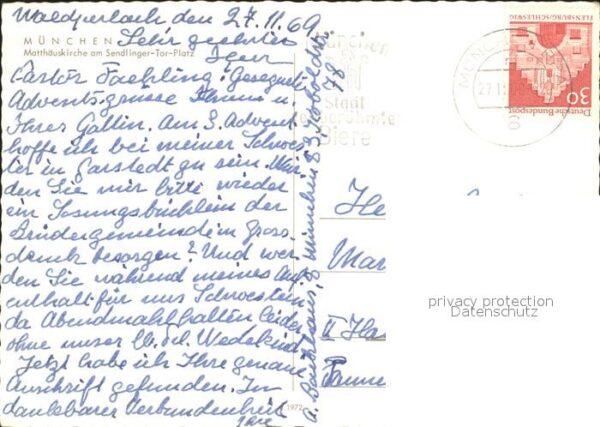 Waldperlach den 27.11.69
MÜNCHEN
Matthäuskirche am Sendlinger-Tor-Platz
Sehr geehrter
Herr
Pastor Faehling! Gesegnete
Adventsgrüsse Ihnen u.
Ihrer Gattin. Am 3. Advent
hoffe ich bei meiner Schwes-
ter in Garstedt zu sein. Wür-
den Sie mir bitte wieder
ein Losungsbüchlein der
Brüdergemeinde im Gross-
druck besorgen? Und wer-
den Sie während meines Auf-
enthalt für uns Schwestern
da Abendmahl halten leider
ohne unser lb. Wedekind
Jetzt habe ich Ihre genaue
Anschrift gefunden. In
dankbarer Verbundenheit
Ihre
8 München 83
78
München
Stadt
berühmter
Biere
MÜNCHEN
27.11
FLENSBURG/SCHLESWIG
30
Deutsche Bundespost
He
Mar
II
privacy protection
Datenschutz
1972